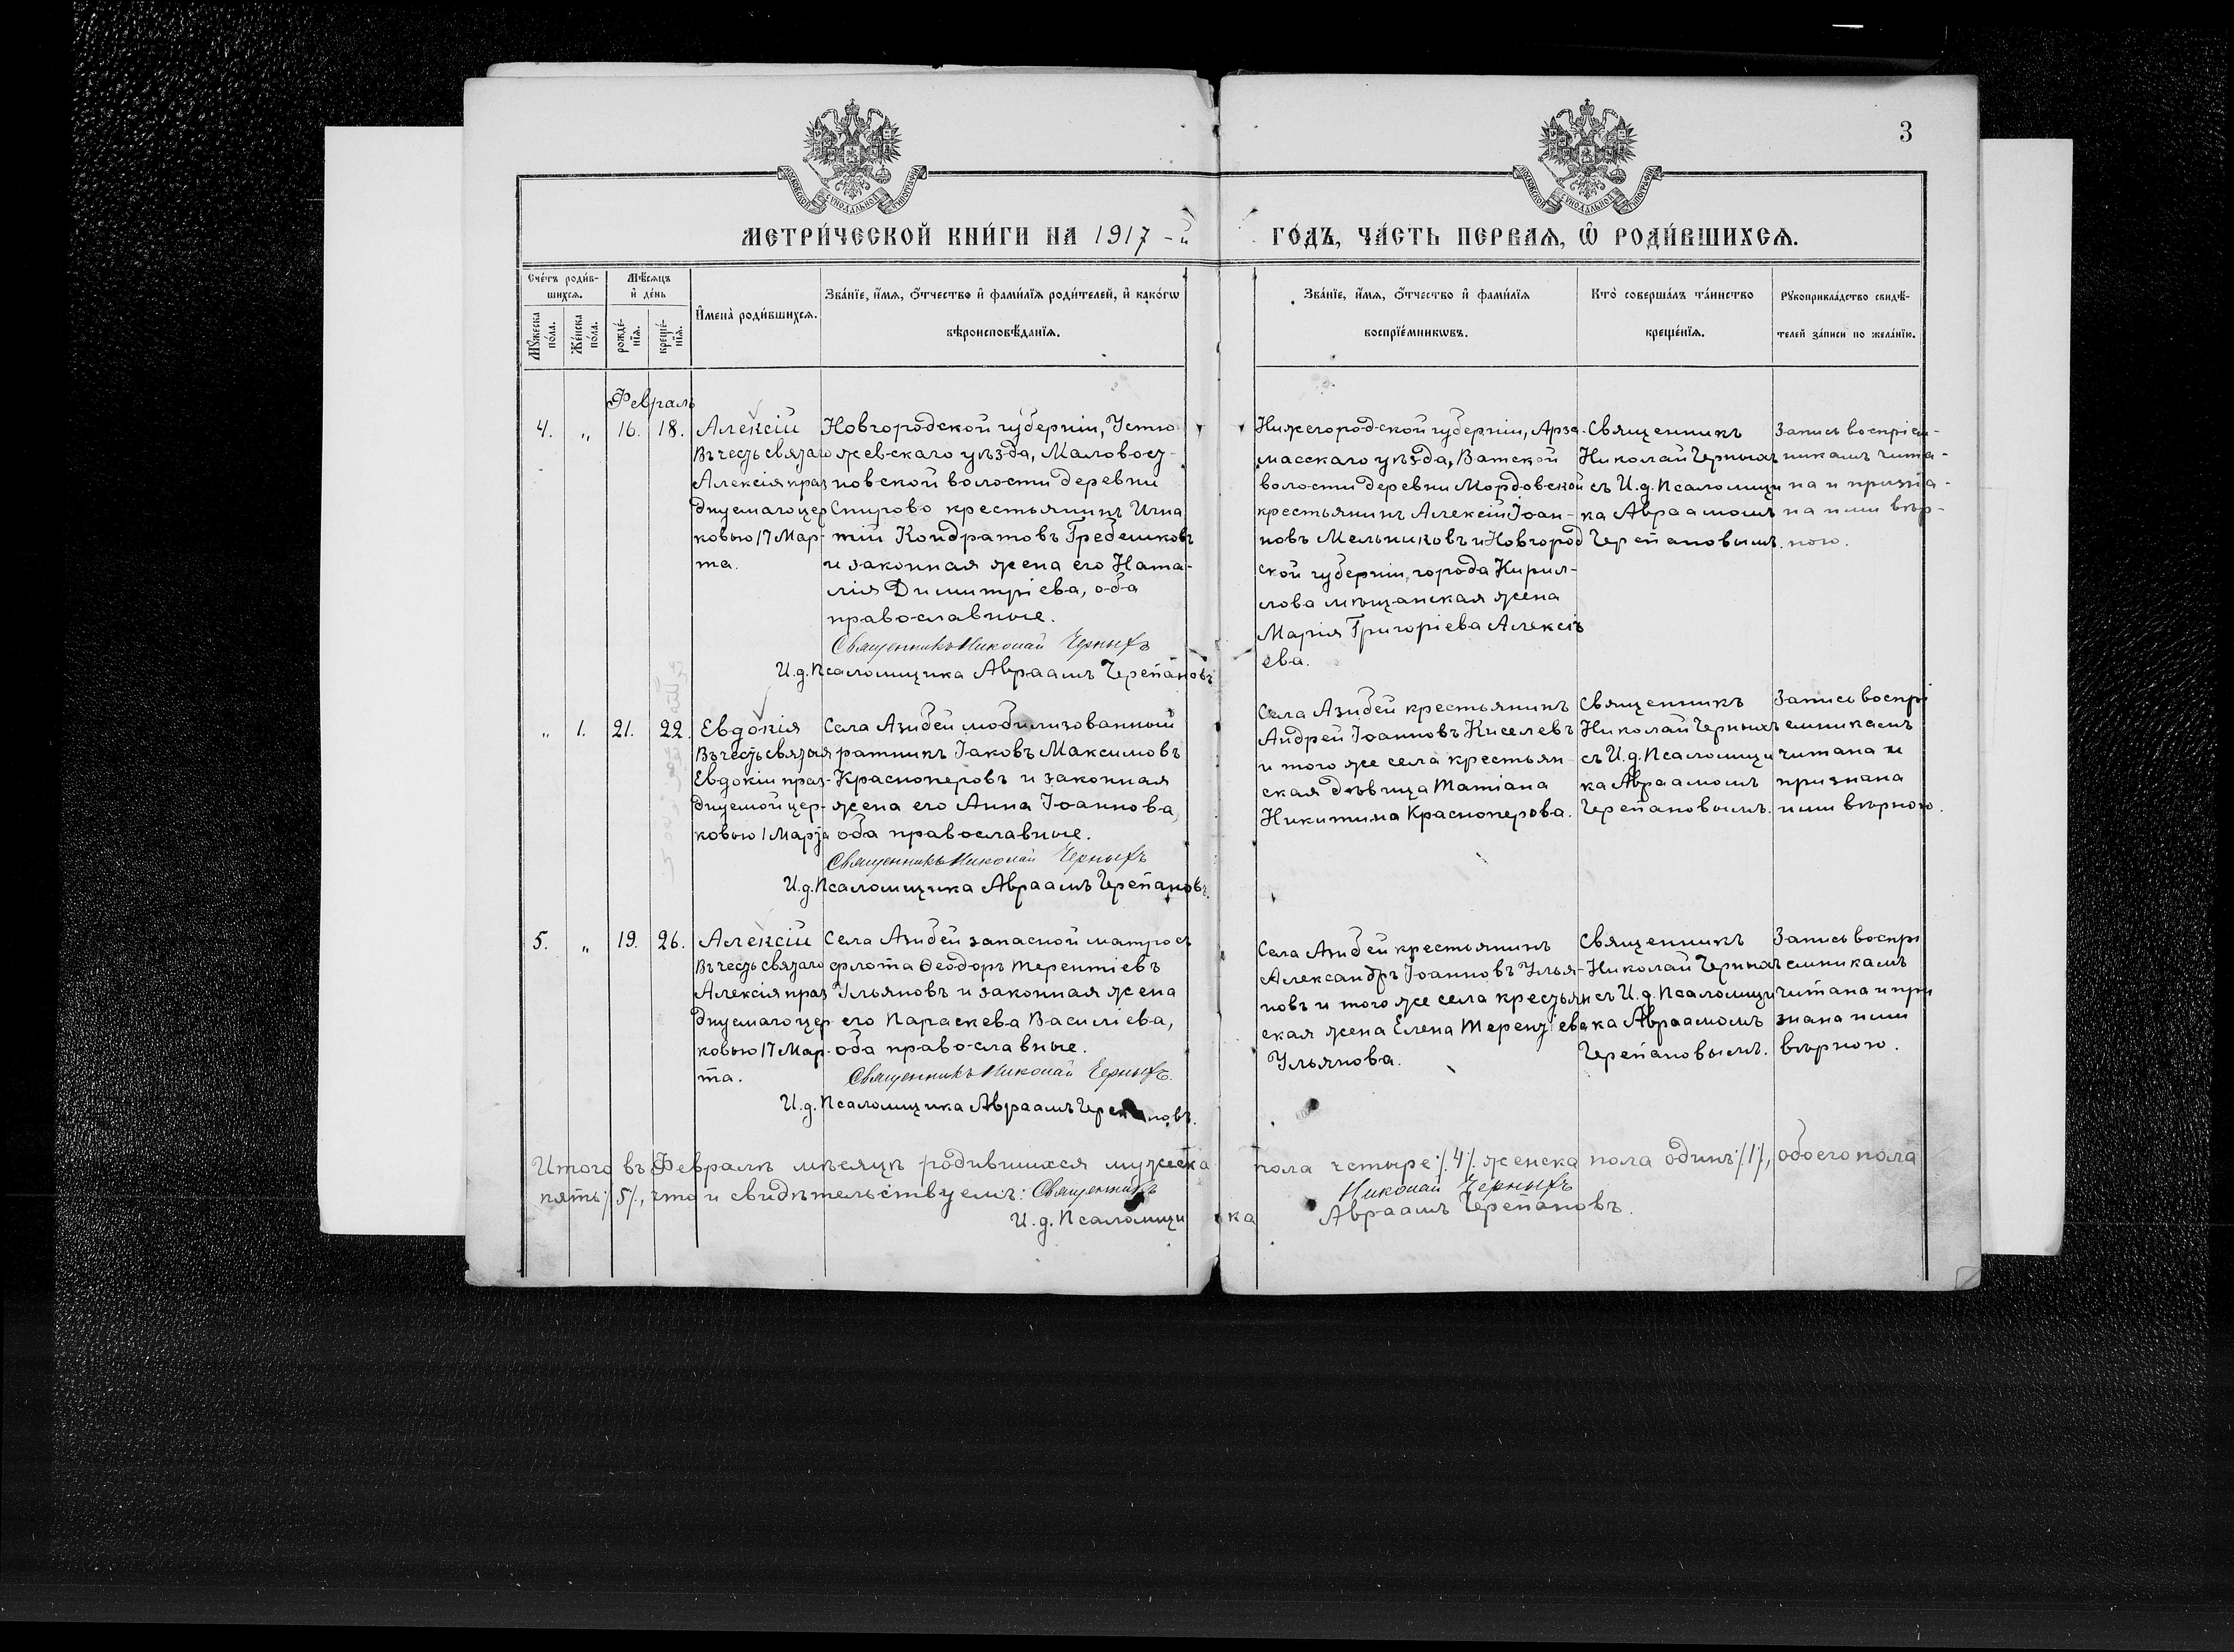 3
МЕТРИ́ЧЕСКОЙ КНИ́ГИ НА 1917-й
ГО́ДЪ, ЧА́СТЬ ПЕРВАѦ, Ѿ РОДИ́ВШИХСѦ.
Сче́тъ роди́в-
шихсѧ.
Мꙋжеска по́ла.
Же́нска по́ла.
Мѣ́сѧцъ
и де́нь
рожде́-
нїѧ.
креще́-
нїѧ.
Имена̀ роди́вшихсѧ.
Зва́нїе, и́мѧ, о́тчество и фами́лїѧ роди́телей, и како́гѡ
вѣроисповѣ́данїѧ.
Зва́нїе, и́мѧ, о́тчество и фами́лїѧ
воспрїе́мникѡвъ.
Кто̀ соверша́лъ та́инство
креще́нїѧ.
Рꙋкоприкла́дство свидѣ́-
телей за́писи по жела́нїю.
Февраль
4. „ 16. 18.
Алексій
Въ честь святаго
Алексія праз
днуемаго цер
ковью 17 Мар-
та.
Новгородской губерніи, Устю
жевскаго уѣзда, Маловосз-
новской волости деревни
Спирово крестьянинъ Игна
тій Кондратовъ Гребешковъ
и законная жена его Ната-
лія Димитріева, оба
православные.
Священникъ Николай Черныхъ
И.д. Псаломщика Авраамъ Черепановъ
Нижегородской губерніи, Арза-
масскаго уѣзда, Ватской
волости деревни Мордовской
крестьянинъ Алексій Іоан-
новъ Мельниковъ и Новгород
ской губерніи, города Кирил-
лова мѣщанская жена
Марія Григоріева Алексі
ева.
Священникъ
Николай Черныхъ
съ И.д. Псаломщи
ка Авраамомъ
Черепановымъ.
Запись воспріем-
никамъ чита-
на и призна-
на ими вѣр-
ною.
„ 1. 21. 22.
Евдокія
Въ честь святыя
Евдокіи праз-
днуемой цер-
ковью 1 Марта
Села Азибей мобилизованный
ратникъ Іаковъ Максимовъ
Красноперовъ и законная
жена его Анна Іоаннова,
оба православные.
Священникъ Николай Черныхъ
И.д. Псаломщика Авраамъ Черепановъ.
Села Азибей крестьянинъ
Андрей Іоанновъ Киселевъ
и того же села крестьян
ская дѣвица Татіана
Никитина Красноперова.
Священникъ
Николай Черныхъ
съ И.д. Псаломщи
ка Авраамомъ
Черепановымъ.
Запись воспрі
емникамъ
читана и
признана
ими вѣрною.
5. „ 19. 26.
Алексій
Въ честь святаго
Алексія праз
днуемаго цер
ковью 17 Мар-
та.
Села Азибей запасной матросъ
флота Ѳеодоръ Терентіевъ
Ульяновъ и законная жена
его Параскева Василіева,
оба православные.
Священникъ Николай Черныхъ.
И.д. Псаломщика Авраамъ Черепановъ.
Села Азибей крестьянинъ
Александръ Іоанновъ Улья-
новъ и того же села крестьян
ская жена Елена Терентіева
Ульянова.
Священникъ
Николай Черныхъ
съ И.д. Псаломщи
ка Авраамомъ
Черепановымъ.
Запись воспрі
емникамъ
читана и при
знана ими
вѣрною.
Итого въ Февралѣ мѣсяцѣ родившихся мужеска пола четыре /4/. женска пола одинъ /1/, обоего пола
пять /5/, что и свидѣтельствуемъ: Священникъ Николай Черныхъ
И.д. Псаломщика Авраамъ Черепановъ.